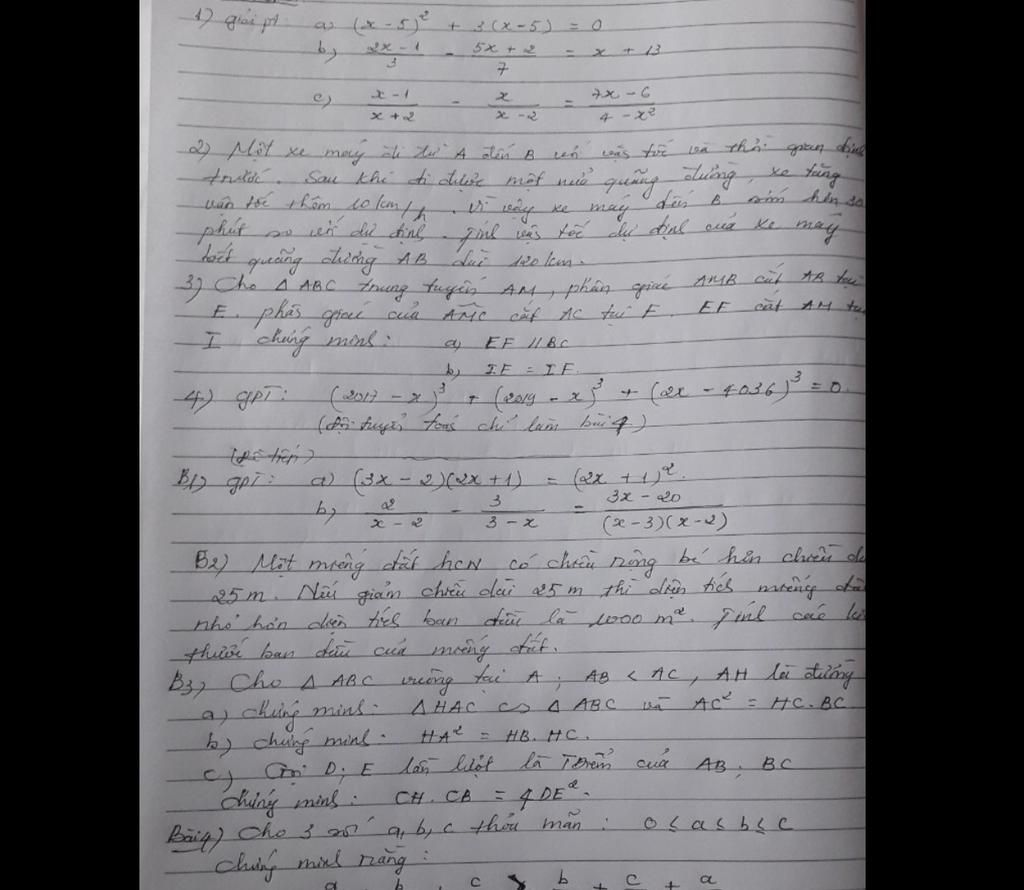 1) giải pt: a) (x - 5)² + 3(x - 5) = 0
b) (2x - 1)/3 - (5x + 2)/7 = x + 13
c) (x - 1)/(x + 2) - x/(x - 2) = (7x - 6)/(4 - x²)
2) Một xe máy đi từ A đến B với vận tốc và thời gian định
trước. Sau khi đi được một nửa quãng đường, xe tăng
vận tốc thêm 10 km/h. Vì vậy xe máy đến B sớm hơn 30
phút so với dự định. Tính vận tốc dự định của xe máy
biết quãng đường AB dài 120 km.
3) Cho Δ ABC trung tuyến AM, phân giác AMB cắt AB tại
E. phân giác của AMC cắt AC tại F. EF cắt AM tại
I chứng minh: a) EF // BC
b) IF = IF.
4) gpt: (2017 - x)³ + (2019 - x)³ + (2x - 4036)³ = 0.
(đội tuyển toán chỉ làm bài 4)
(Đề tiếp)
B1) gpt: a) (3x - 2)(2x + 1) = (2x + 1)².
b) 2/(x - 2) - 3/(3 - x) = (3x - 20)/((x - 3)(x - 2))
B2) Một miếng đất hcn có chiều rộng bé hơn chiều
25 m. Nếu giảm chiều dài 25 m thì diện tích miếng
nhỏ hơn diện tích ban đầu là 1000 m². Tính các
thước ban đầu của miếng đất.
B3) Cho Δ ABC vuông tại A; AB < AC, AH là đường
a) chứng minh: Δ HAC ∽ Δ ABC và AC² = HC.BC
b) chứng minh: HA² = HB.HC.
c) Gọi D; E lần lượt là Tđiểm của AB; BC
chứng minh: CH.CB = 4DE².
Bài 4) Cho 3 số a, b, c thỏa mãn: 0 ≤ a ≤ b ≤ c
chứng minh rằng: